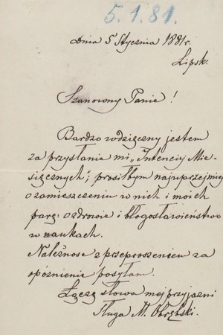 5.1.81.
dnia 5 Stycznia 1881 r.
Lipsk.
Szanowny Panie!
Bardzo wdzięczny jestem
za przysłanie mi „Intencij Mie-
sięcznych", prosiłbym najuprzejmiej
o zamieszczenie w nich i moich
parę: o zdrowie i błogosławieństwo
w naukach.
Należność z przeproszeniem za
opóźnienie posyłam.
Łączę słowa mej przyjaźni
Sługa M.